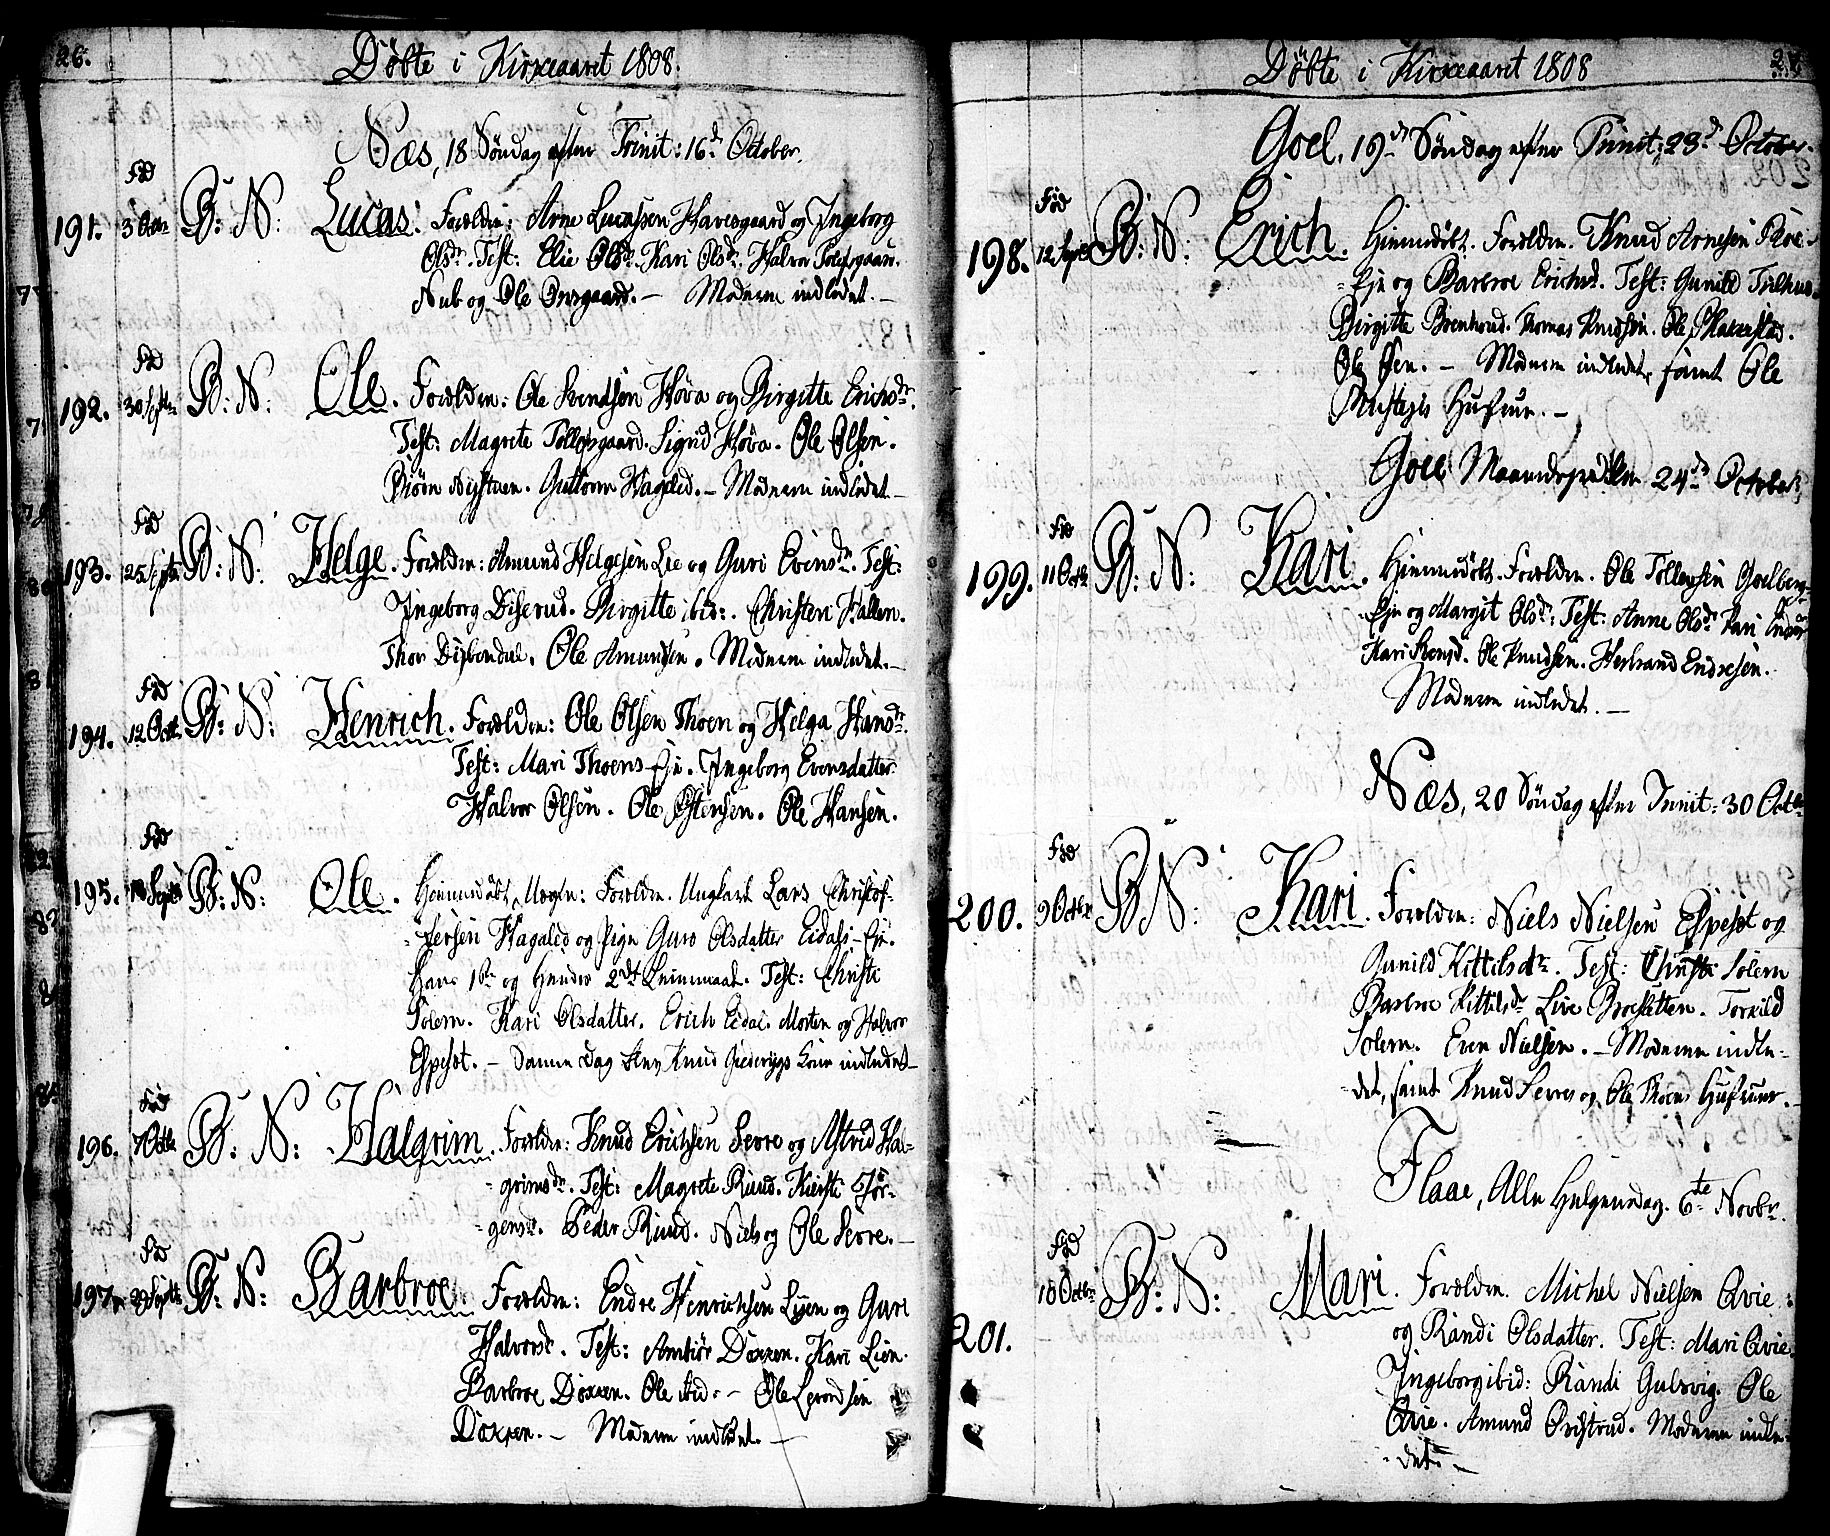 26.
Døbte i Kirkeaaret 1808.
Næs, 18 Søndag efter Trinit: 16d October.
Fød
191. 3 Octbr B: N: Lucas. Forældre: Arne Lucassen Haresgaard og Ingeborg
Olsdr. Test: Elie Olsdr. Kari Olsdr. Halvor
Nub og Ole Onsgaard. – Moderen indledet. –
Fød
192. 30 Septbr B: N: Ole. Forældre: Ole Svendsen Høva og Birgitte Erichsdr.
Test: Magrete Tollefsgaard. Sigrid Høva. Ole Olsen.
Biörn Nystuen. Guttorm Hagelid. – Moderen indledet –
Fød
193. 25 Septr B: N: Helge. Forældre: Amund Helgesen Lie og Guri Evensdr. Test:
Ingeborg Diserud. Birgitte ibid:. Christen Hallen.
Thor Dybendal. Ole Amundsen. Moderen indledet. –
Fød
194. 12 Octr B: N: Henrich. Forældre: Ole Olsen Thoen og Helga Hansdr.
Test: Mari Thoens-Eje. Ingeborg Evensdatter
Halvor Olsen. Ole Østensen. Ole Hansen.
Fød
195. Septr B: N: Ole. Hjemmedøbt, Uægte: Forældre. Ungkarl Lars Christof-
fersen Hagaled og Pige Guro Olsdatter Eidals-Eje.
Hans 1ste og Hendes 2det Leiermaal. Test: Christi
Solem. Kari Olsdatter. Erich Eidal. Morten og Halvor
Espeset. – Samme dag blev Knud Kone indledet –
Fød
196. 7 Octbr B: N: Halgrim. Forældre: Knud Erichsen Serre og Astrid Ha-
grimsdr. Test: Magrete Rund. Kiersti Tör-
gensdr. Peder Rund. Niels og Ole Serre. –
Fød
197. 29 Septbr B: N: Barbroe. Forældre: Endre Henrichsen Lien og Guri
Halvorsdr. Test: Ambiör Doxken. Kari Lien.
Barbroe Doxken. Ole ibid. – Ole Levordsen
Doxken. – Moderen indledet. –
27
Døbte i Kirkeaaret 1808
Goel, 19de Søndag efter Trinit: 23d October.
Fød
198. 12 Septr B: N: Erich. Hjemmedøbt. Forældre. Knud Arnesen Roe-
Eje og Barbroe Erichsd. Test: Gunild
Birgitte Brenhoud. Thomas Knudsen. Ole
Ole Øen. – Moderen indledet, samt Ole
Hustrue. –
Goel 24de October.
Fød
199. 11 Octbr B: N: Kari. Hjemmedøbt. Forældre. Ole Tollefsen Goelberg-
Eje og Margit Olsdr. Test: Anne Olsdr. Kari
Kari Svensd. Ole Knudsen. Herbrand Endresen.
Moderen indledet. –
Næs, 20 Søndag efter Trinit: 30 Octbr
Fød
200. 9 Octbr B: N: Kari. Forældre: Niels Nielsen Espeset og
Gunild Kittilsdr. Test: Christi Solem
Barbroe Kittilsdr Live Torkild
Solem. Even Nielsen. – Moderen indle-
det, samt Knud Serres og Ole Thoens Hustruer. –
Flaae, Alle Helgensdag. 6te Novbr.
Fød
201. 10 Octbr B: N: Mari. Forældre. Michel Nielsen Qvie
og Randi Olsdatter. Test: Mari Qvie.
Ingeborg ibid: Randi Gulsvig. Ole
Qvie. Amund Moderen indle-
det. –